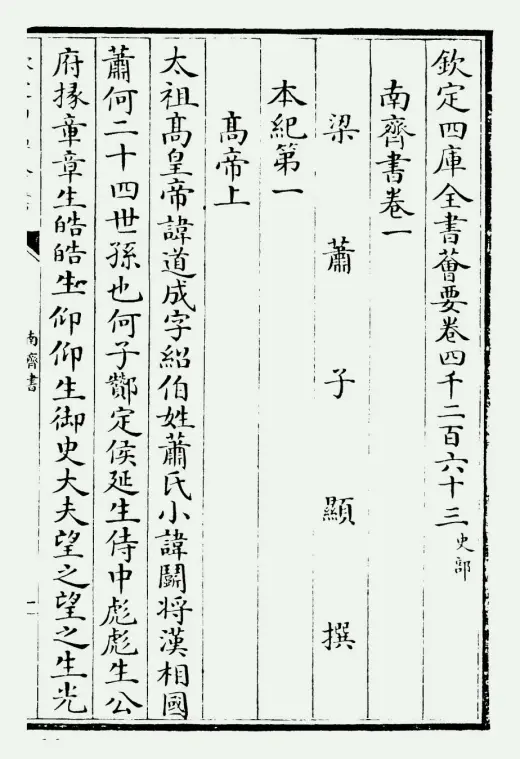 欽定四庫全書薈要卷四千二百六十三 史部
南齊書卷一
梁蕭子顯撰
本紀第一
高帝上
太祖高皇帝諱道成字紹伯姓蕭氏小諱鬭將漢相國
蕭何二十四世孫也何子酇定侯延生侍中彪彪生公
府掾章章生皓皓生仰仰生御史大夫望之望之生光
南齊書